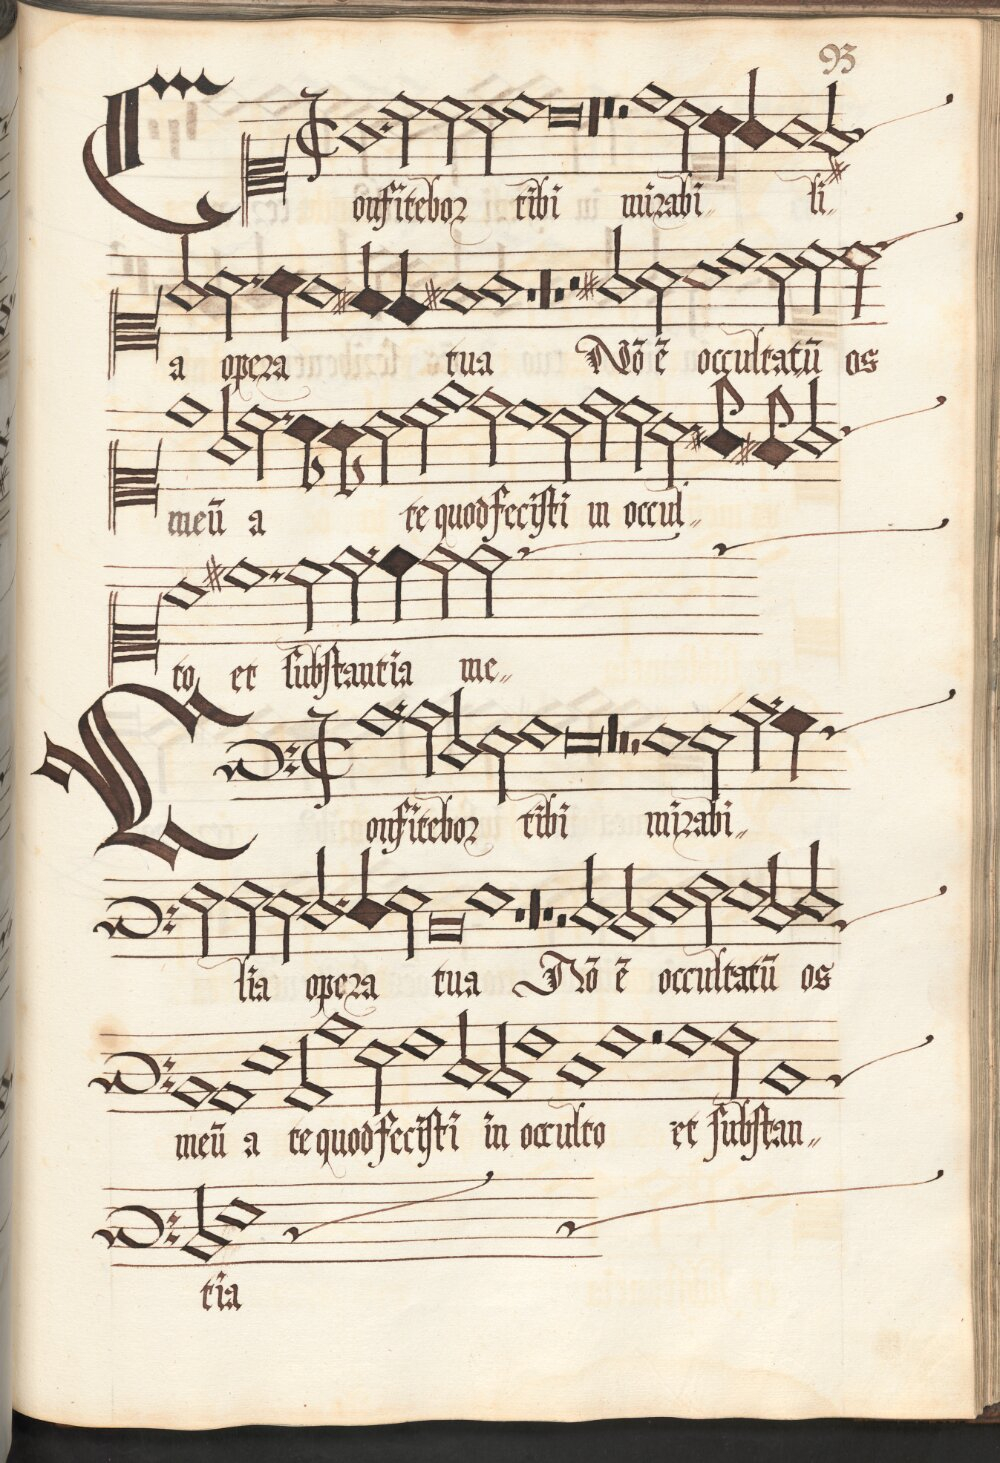 93
Confitebor tibi mirabi„ li„
a opera tua Nō ē occultatū os
meū a te quod fecisti in occul„
to et substantia me„
Confitebor tibi mirabi„
lia opera tua Nō ē occultatū os
meū a te quod fecisti in occulto et substan„
tia